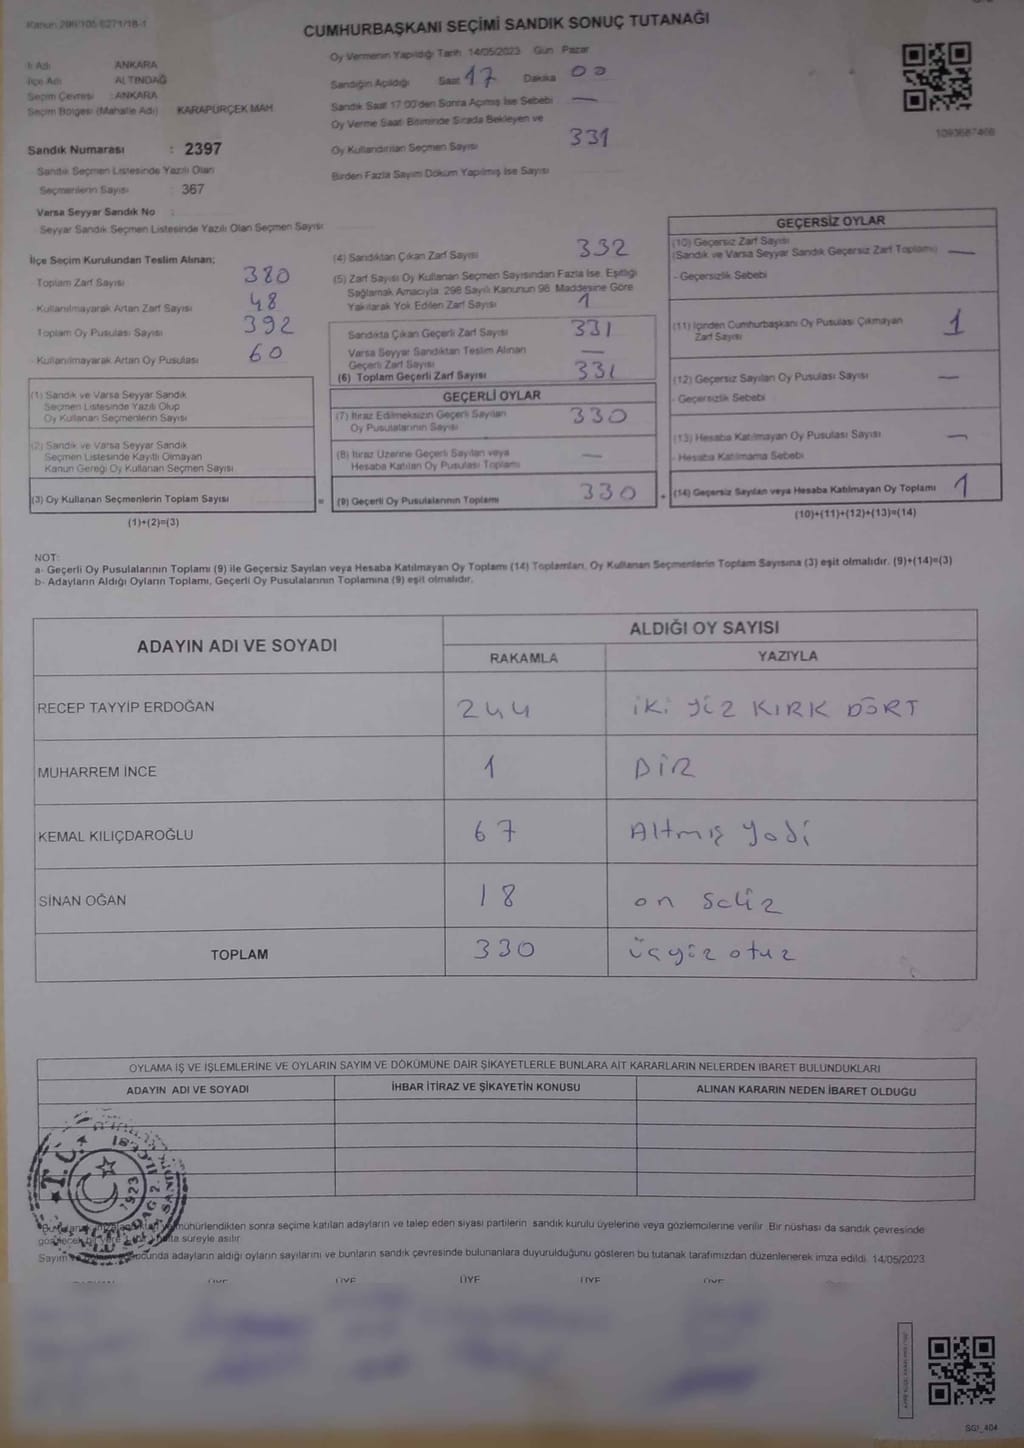 Kanun 298/105 6271/18-1
CUMHURBAŞKANI SEÇİMİ SANDIK SONUÇ TUTANAĞI
İl Adı ANKARA
İlçe Adı ALTINDAĞ
Seçim Çevresi : ANKARA
Seçim Bölgesi (Mahalle Adı) KARAPÜRÇEK MAH.
Sandık Numarası : 2397
Sandık Seçmen Listesinde Yazılı Olan
Seçmenlerin Sayısı : 367
Varsa Seyyar Sandık No :
Seyyar Sandık Seçmen Listesinde Yazılı Olan Seçmen Sayısı
Oy Vermenin Yapıldığı Tarih 14/05/2023 Gün Pazar
Sandığın Açıldığı Saat 17 Dakika 00
Sandık Saat 17:00'den Sonra Açılmış İse Sebebi —
Oy Verme Saati Bitiminde Sırada Bekleyen ve
Oy Kullandırılan Seçmen Sayısı 331
Birden Fazla Sayım Döküm Yapılmış İse Sayısı
1093687466
İlçe Seçim Kurulundan Teslim Alınan;
Toplam Zarf Sayısı 380
- Kullanılmayarak Artan Zarf Sayısı 48
Toplam Oy Pusulası Sayısı 392
- Kullanılmayarak Artan Oy Pusulası 60
(1) Sandık ve Varsa Seyyar Sandık
Seçmen Listesinde Yazılı Olup
Oy Kullanan Seçmenlerin Sayısı
(2) Sandık ve Varsa Seyyar Sandık
Seçmen Listesinde Kayıtlı Olmayan
Kanun Gereği Oy Kullanan Seçmen Sayısı
(3) Oy Kullanan Seçmenlerin Toplam Sayısı =
(1)+(2)=(3)
(4) Sandıktan Çıkan Zarf Sayısı 332
(5) Zarf Sayısı Oy Kullanan Seçmen Sayısından Fazla İse, Eşitliği
Sağlamak Amacıyla, 298 Sayılı Kanunun 98. Maddesine Göre
Yakılarak Yok Edilen Zarf Sayısı 1
Sandıkta Çıkan Geçerli Zarf Sayısı 331
Varsa Seyyar Sandıktan Teslim Alınan
Geçerli Zarf Sayısı —
(6) Toplam Geçerli Zarf Sayısı 331
GEÇERLİ OYLAR
(7) İtiraz Edilmeksizin Geçerli Sayılan
Oy Pusulalarının Sayısı 330
(8) İtiraz Üzerine Geçerli Sayılan veya
Hesaba Katılan Oy Pusulası Toplamı —
(9) Geçerli Oy Pusulalarının Toplamı 330 +
GEÇERSİZ OYLAR
(10) Geçersiz Zarf Sayısı
(Sandık ve Varsa Seyyar Sandık Geçersiz Zarf Toplamı) —
- Geçersizlik Sebebi
(11) İçinden Cumhurbaşkanı Oy Pusulası Çıkmayan
Zarf Sayısı 1
(12) Geçersiz Sayılan Oy Pusulası Sayısı —
- Geçersizlik Sebebi
(13) Hesaba Katılmayan Oy Pusulası Sayısı —
- Hesaba Katılmama Sebebi
(14) Geçersiz Sayılan veya Hesaba Katılmayan Oy Toplamı 1
(10)+(11)+(12)+(13)=(14)
NOT:
a- Geçerli Oy Pusulalarının Toplamı (9) ile Geçersiz Sayılan veya Hesaba Katılmayan Oy Toplamı (14) Toplamları, Oy Kullanan Seçmenlerin Toplam Sayısına (3) eşit olmalıdır. (9)+(14)=(3)
b- Adayların Aldığı Oyların Toplamı, Geçerli Oy Pusulalarının Toplamına (9) eşit olmalıdır.
ADAYIN ADI VE SOYADI
ALDIĞI OY SAYISI
RAKAMLA YAZIYLA
RECEP TAYYİP ERDOĞAN 244 iki yüz KIRK DÖRT
MUHARREM İNCE 1 BİR
KEMAL KILIÇDAROĞLU 67 Altmış yedi
SİNAN OĞAN 18 on sekiz
TOPLAM 330 üçyüz otuz
OYLAMA İŞ VE İŞLEMLERİNE VE OYLARIN SAYIM VE DÖKÜMÜNE DAİR ŞİKAYETLERLE BUNLARA AİT KARARLARIN NELERDEN İBARET BULUNDUKLARI
ADAYIN ADI VE SOYADI İHBAR İTİRAZ VE ŞİKAYETİN KONUSU ALINAN KARARIN NEDEN İBARET OLDUĞU
T.C. ALTINDAĞ 2. İLÇE 1923
mühürlendikten sonra seçime katılan adayların ve talep eden siyasi partilerin sandık kurulu üyelerine veya gözlemcilerine verilir. Bir nüshası da sandık çevresinde
hafta süreyle asılır.
Sayım adayların aldığı oyların sayılarını ve bunların sandık çevresinde bulunanlara duyurulduğunu gösteren bu tutanak tarafımızdan düzenlenerek imza edildi. 14/05/2023
ÜYE ÜYE ÜYE ÜYE ÜYE
SGI_404